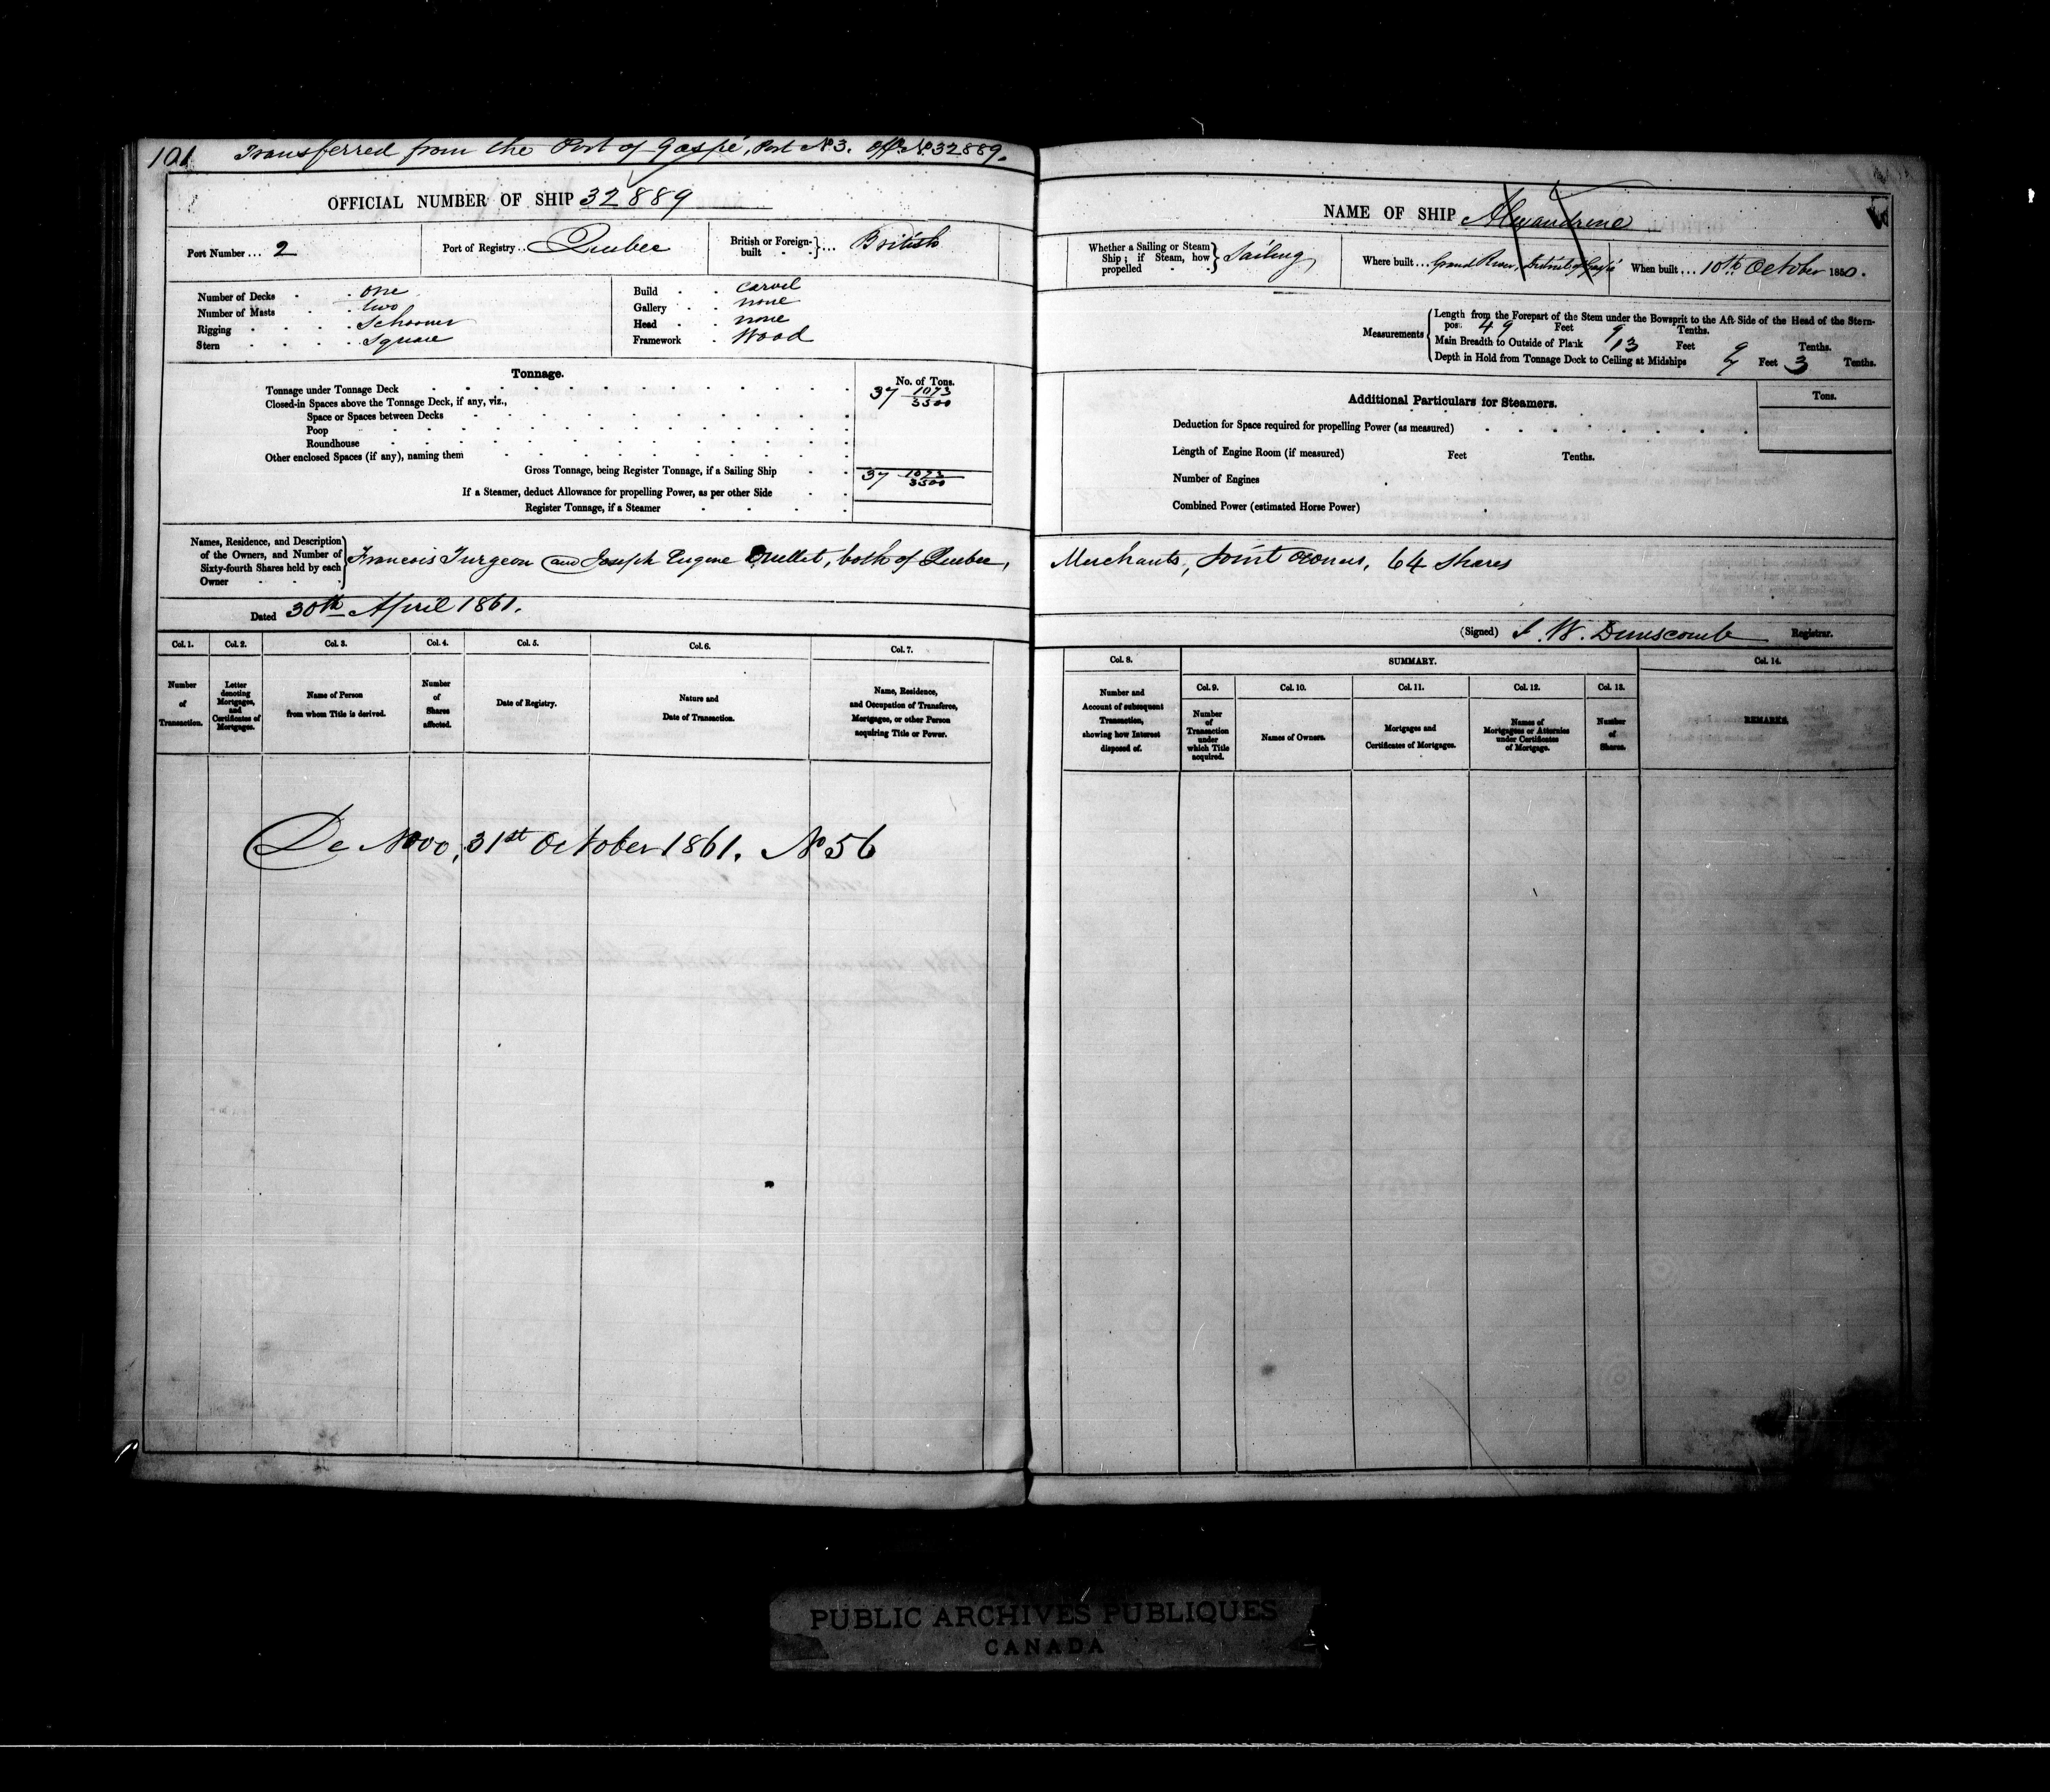 101 Transferred from the Port of Gaspé, Port No 3. Off. No. 32889.
OFFICIAL NUMBER OF SHIP 32889
Port Number ... 2 Port of Registry .. Quebec British or Foreign-built } ... British
Number of Decks . . one
Number of Masts . . two
Rigging . . . . Schooner
Stern . . . . Square
Build . . carvel
Gallery . . none
Head . . none
Framework . Wood
Tonnage.
No. of Tons.
Tonnage under Tonnage Deck 37 1073/3500
Closed-in Spaces above the Tonnage Deck, if any, viz.,
Space or Spaces between Decks
Poop
Roundhouse
Other enclosed Spaces (if any), naming them
Gross Tonnage, being Register Tonnage, if a Sailing Ship 37 1073/3500
If a Steamer, deduct Allowance for propelling Power, as per other Side
Register Tonnage, if a Steamer
Names, Residence, and Description
of the Owners, and Number of
Sixty-fourth Shares held by each
Owner
Francois Turgeon and Joseph Eugene Ouellet, both of Quebec,
Dated 30th April 1861.
Col. 1. Col. 2. Col. 3. Col. 4. Col. 5. Col. 6. Col. 7.
Number of Transaction.
Letter denoting Mortgages, and Certificates of Mortgages.
Name of Person from whom Title is derived.
Number of Shares affected.
Date of Registry.
Nature and Date of Transaction.
Name, Residence, and Occupation of Transferee, Mortgagee, or other Person acquiring Title or Power.
De Novo, 31st October 1861. No 56
NAME OF SHIP Alexandrine
Whether a Sailing or Steam Ship; if Steam, how propelled } Sailing
Where built ... Grand River, District of Gaspé
When built ... 10th October 1850.
Measurements
Length from the Forepart of the Stem under the Bowsprit to the Aft Side of the Head of the Stern-
post 49 Feet 9 Tenths.
Main Breadth to Outside of Plank 13 Feet 9 Tenths.
Depth in Hold from Tonnage Deck to Ceiling at Midships Feet 3 Tenths.
Additional Particulars for Steamers.
Tons.
Deduction for Space required for propelling Power (as measured)
Length of Engine Room (if measured) Feet Tenths.
Number of Engines
Combined Power (estimated Horse Power)
Merchants, Joint Owners, 64 Shares
(Signed) J. W. Dunscomb Registrar.
Col. 8. SUMMARY. Col. 14.
Col. 9. Col. 10. Col. 11. Col. 12. Col. 13.
Number and Account of subsequent Transaction, showing how Interest disposed of.
Number of Transaction under which Title acquired.
Names of Owners.
Mortgages and Certificates of Mortgages.
Names of Mortgagees or Attornies under Certificates of Mortgage.
Number of Shares.
REMARKS.
PUBLIC ARCHIVES PUBLIQUES
CANADA